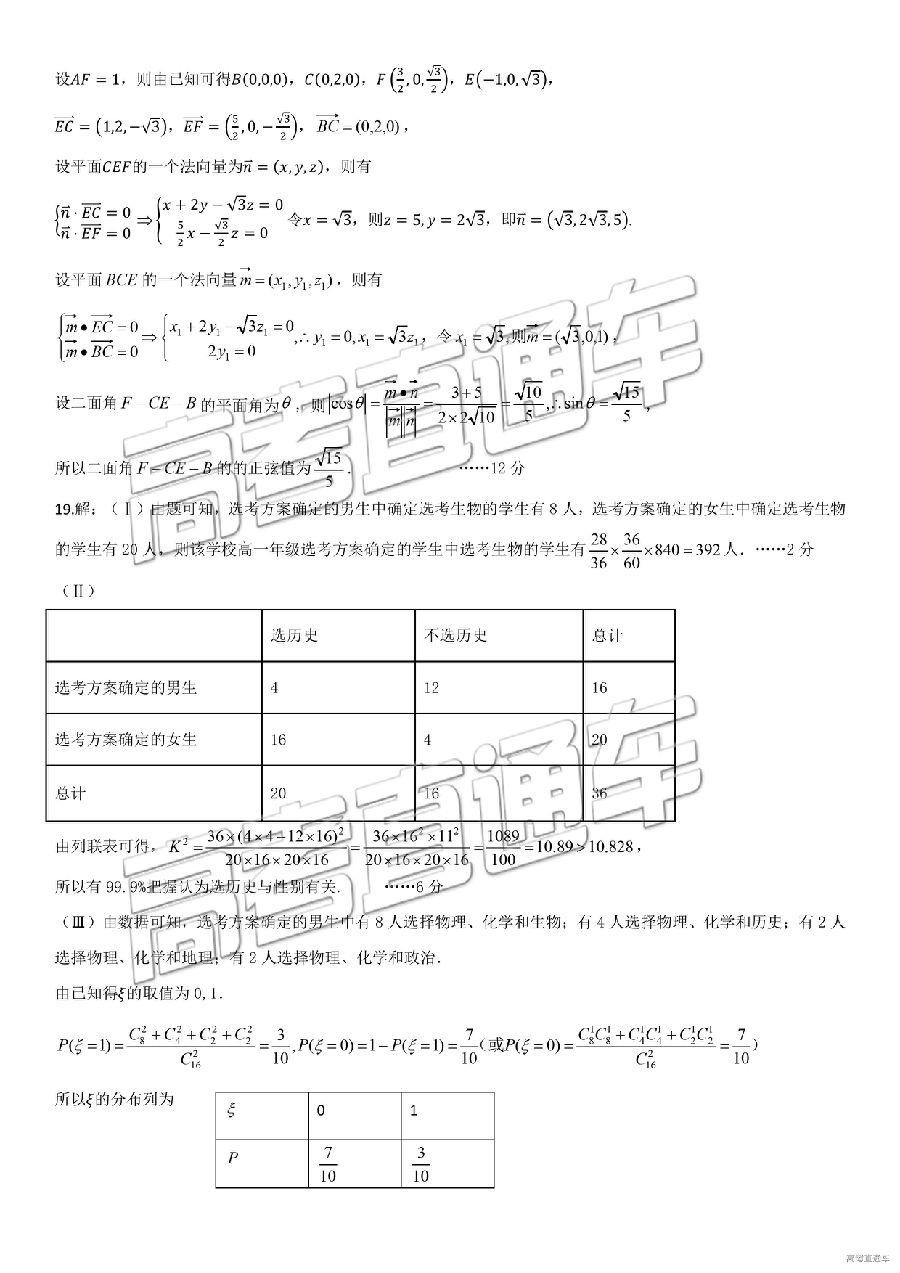 设AF = 1，则由已知可得B(0,0,0)，C(0,2,0)，F(3/2, 0, √3/2)，E(−1,0, √3)，
EC = (1,2, −√3)，EF = (5/2, 0, − √3/2)， BC = (0,2,0)，
设平面CEF的一个法向量为n = (x, y, z)，则有
{n · EC = 0 n · EF = 0 ⇒ {x + 2y − √3z = 0 5/2 x − √3/2 z = 0 令x = √3，则z = 5, y = 2√3，即n = (√3, 2√3, 5).
设平面 BCE 的一个法向量 m = (x₁, y₁, z₁)，则有
{m • EC = 0 m • BC = 0 ⇒ {x₁ + 2y₁ − √3z₁ = 0 2y₁ = 0 ,∴ y₁ = 0, x₁ = √3z₁，令 x₁ = √3,则m = (√3,0,1)，
设二面角 F−CE−B 的平面角为θ，则|cosθ| = m•n/|m||n| = 3+5/2×2√10 = √10/5 ,∴sinθ = √15/5，
所以二面角 F−CE−B 的的正弦值为 √15/5 . ……12 分
19.解：（Ⅰ）由题可知，选考方案确定的男生中确定选考生物的学生有 8 人，选考方案确定的女生中确定选考生物
的学生有 20 人，则该学校高一年级选考方案确定的学生中选考生物的学生有 28/36 × 36/60 ×840 = 392 人．……2 分
（Ⅱ）
选历史 不选历史 总计
选考方案确定的男生 4 12 16
选考方案确定的女生 16 4 20
总计 20 16 36
由列联表可得，K² = 36×(4×4−12×16)²/20×16×20×16 = 36×16²×11²/20×16×20×16 = 1089/100 = 10.89 > 10.828，
所以有 99.9%把握认为选历史与性别有关. ……6 分
（Ⅲ）由数据可知，选考方案确定的男生中有 8 人选择物理、化学和生物；有 4 人选择物理、化学和历史；有 2 人
选择物理、化学和地理；有 2 人选择物理、化学和政治．
由已知得ξ的取值为 0,1．
P(ξ = 1) = C₈² + C₄² + C₂² + C₂²/C₁₆² = 3/10 , P(ξ = 0) = 1 − P(ξ = 1) = 7/10（或P(ξ = 0) = C₈¹C₈¹ + C₄¹C₄¹ + C₂¹C₂¹/C₁₆² = 7/10）
所以ξ的分布列为
ξ 0 1
P 7/10 3/10
高考直通车
高考直通车
高考直通车